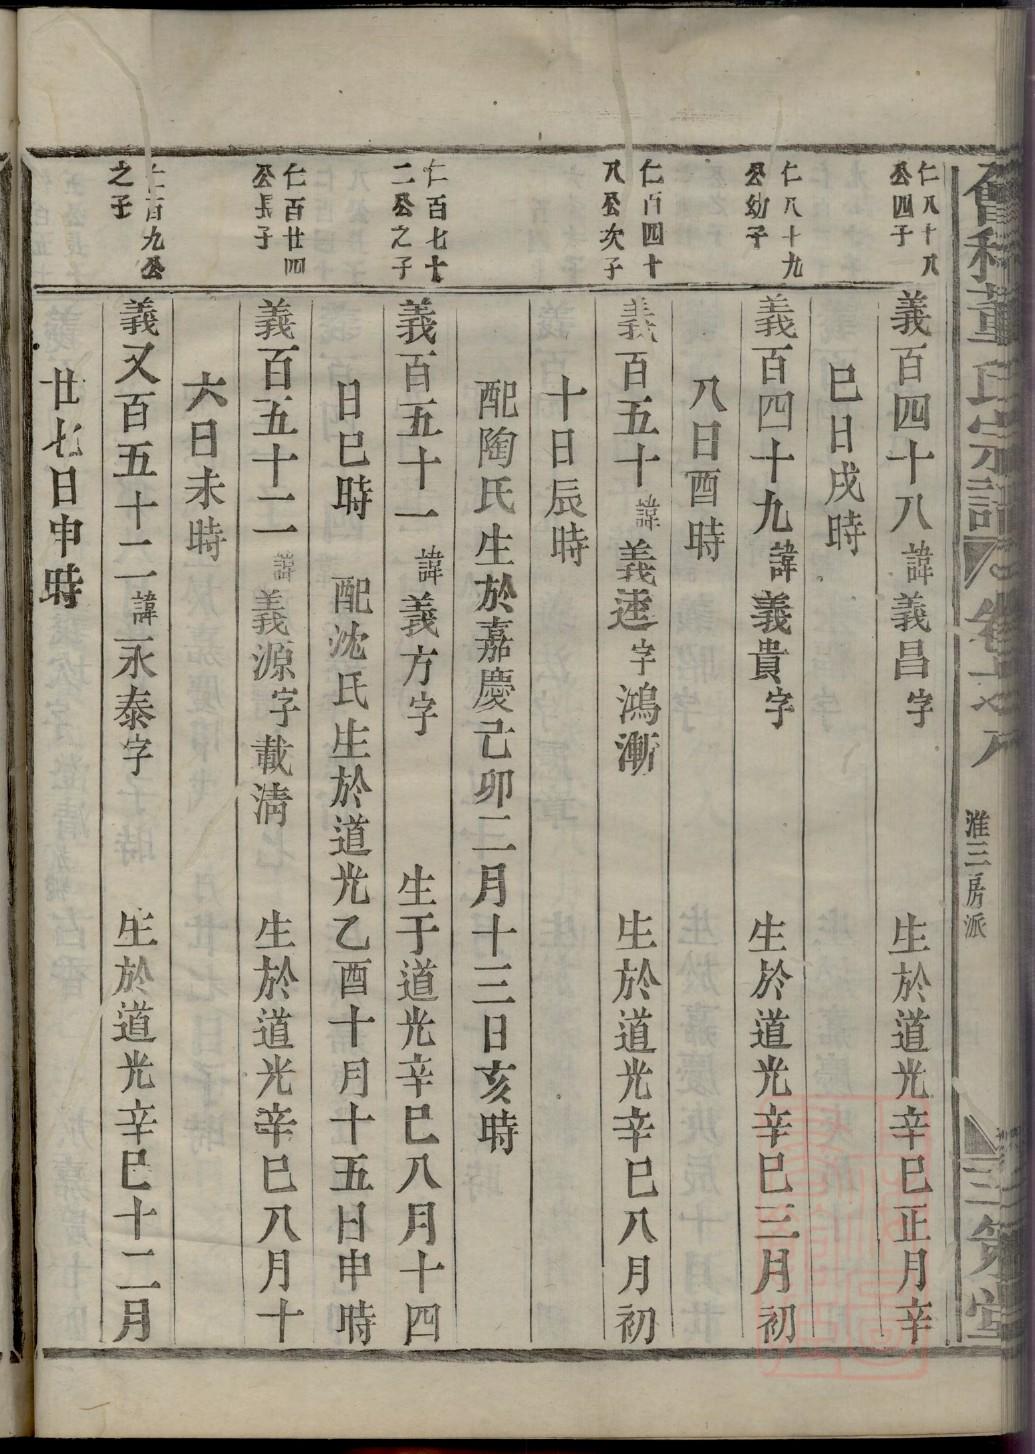 董氏宗譜
卷
淮三房派
三策堂
仁八十八
公四子
義百四十八諱義昌字 生於道光辛巳正月辛
巳日戌時
仁八十九
公幼子
義百四十九諱義貴字 生於道光辛巳三月初
八日酉時
仁百四十
八公次子
義百五十諱義逵字鴻漸 生於道光辛巳八月初
十日辰時
配陶氏生於嘉慶己卯二月十三日亥時
仁百七十
二公之子
義百五十一諱義方字 生于道光辛巳八月十四
日巳時 配沈氏生於道光乙酉十月十五日申時
仁百廿四
公長子
義百五十二諱義源字載清 生於道光辛巳八月十
六日未時
仁百九公
之子
義又百五十二諱永泰字 生於道光辛巳十二月
廿七日申時